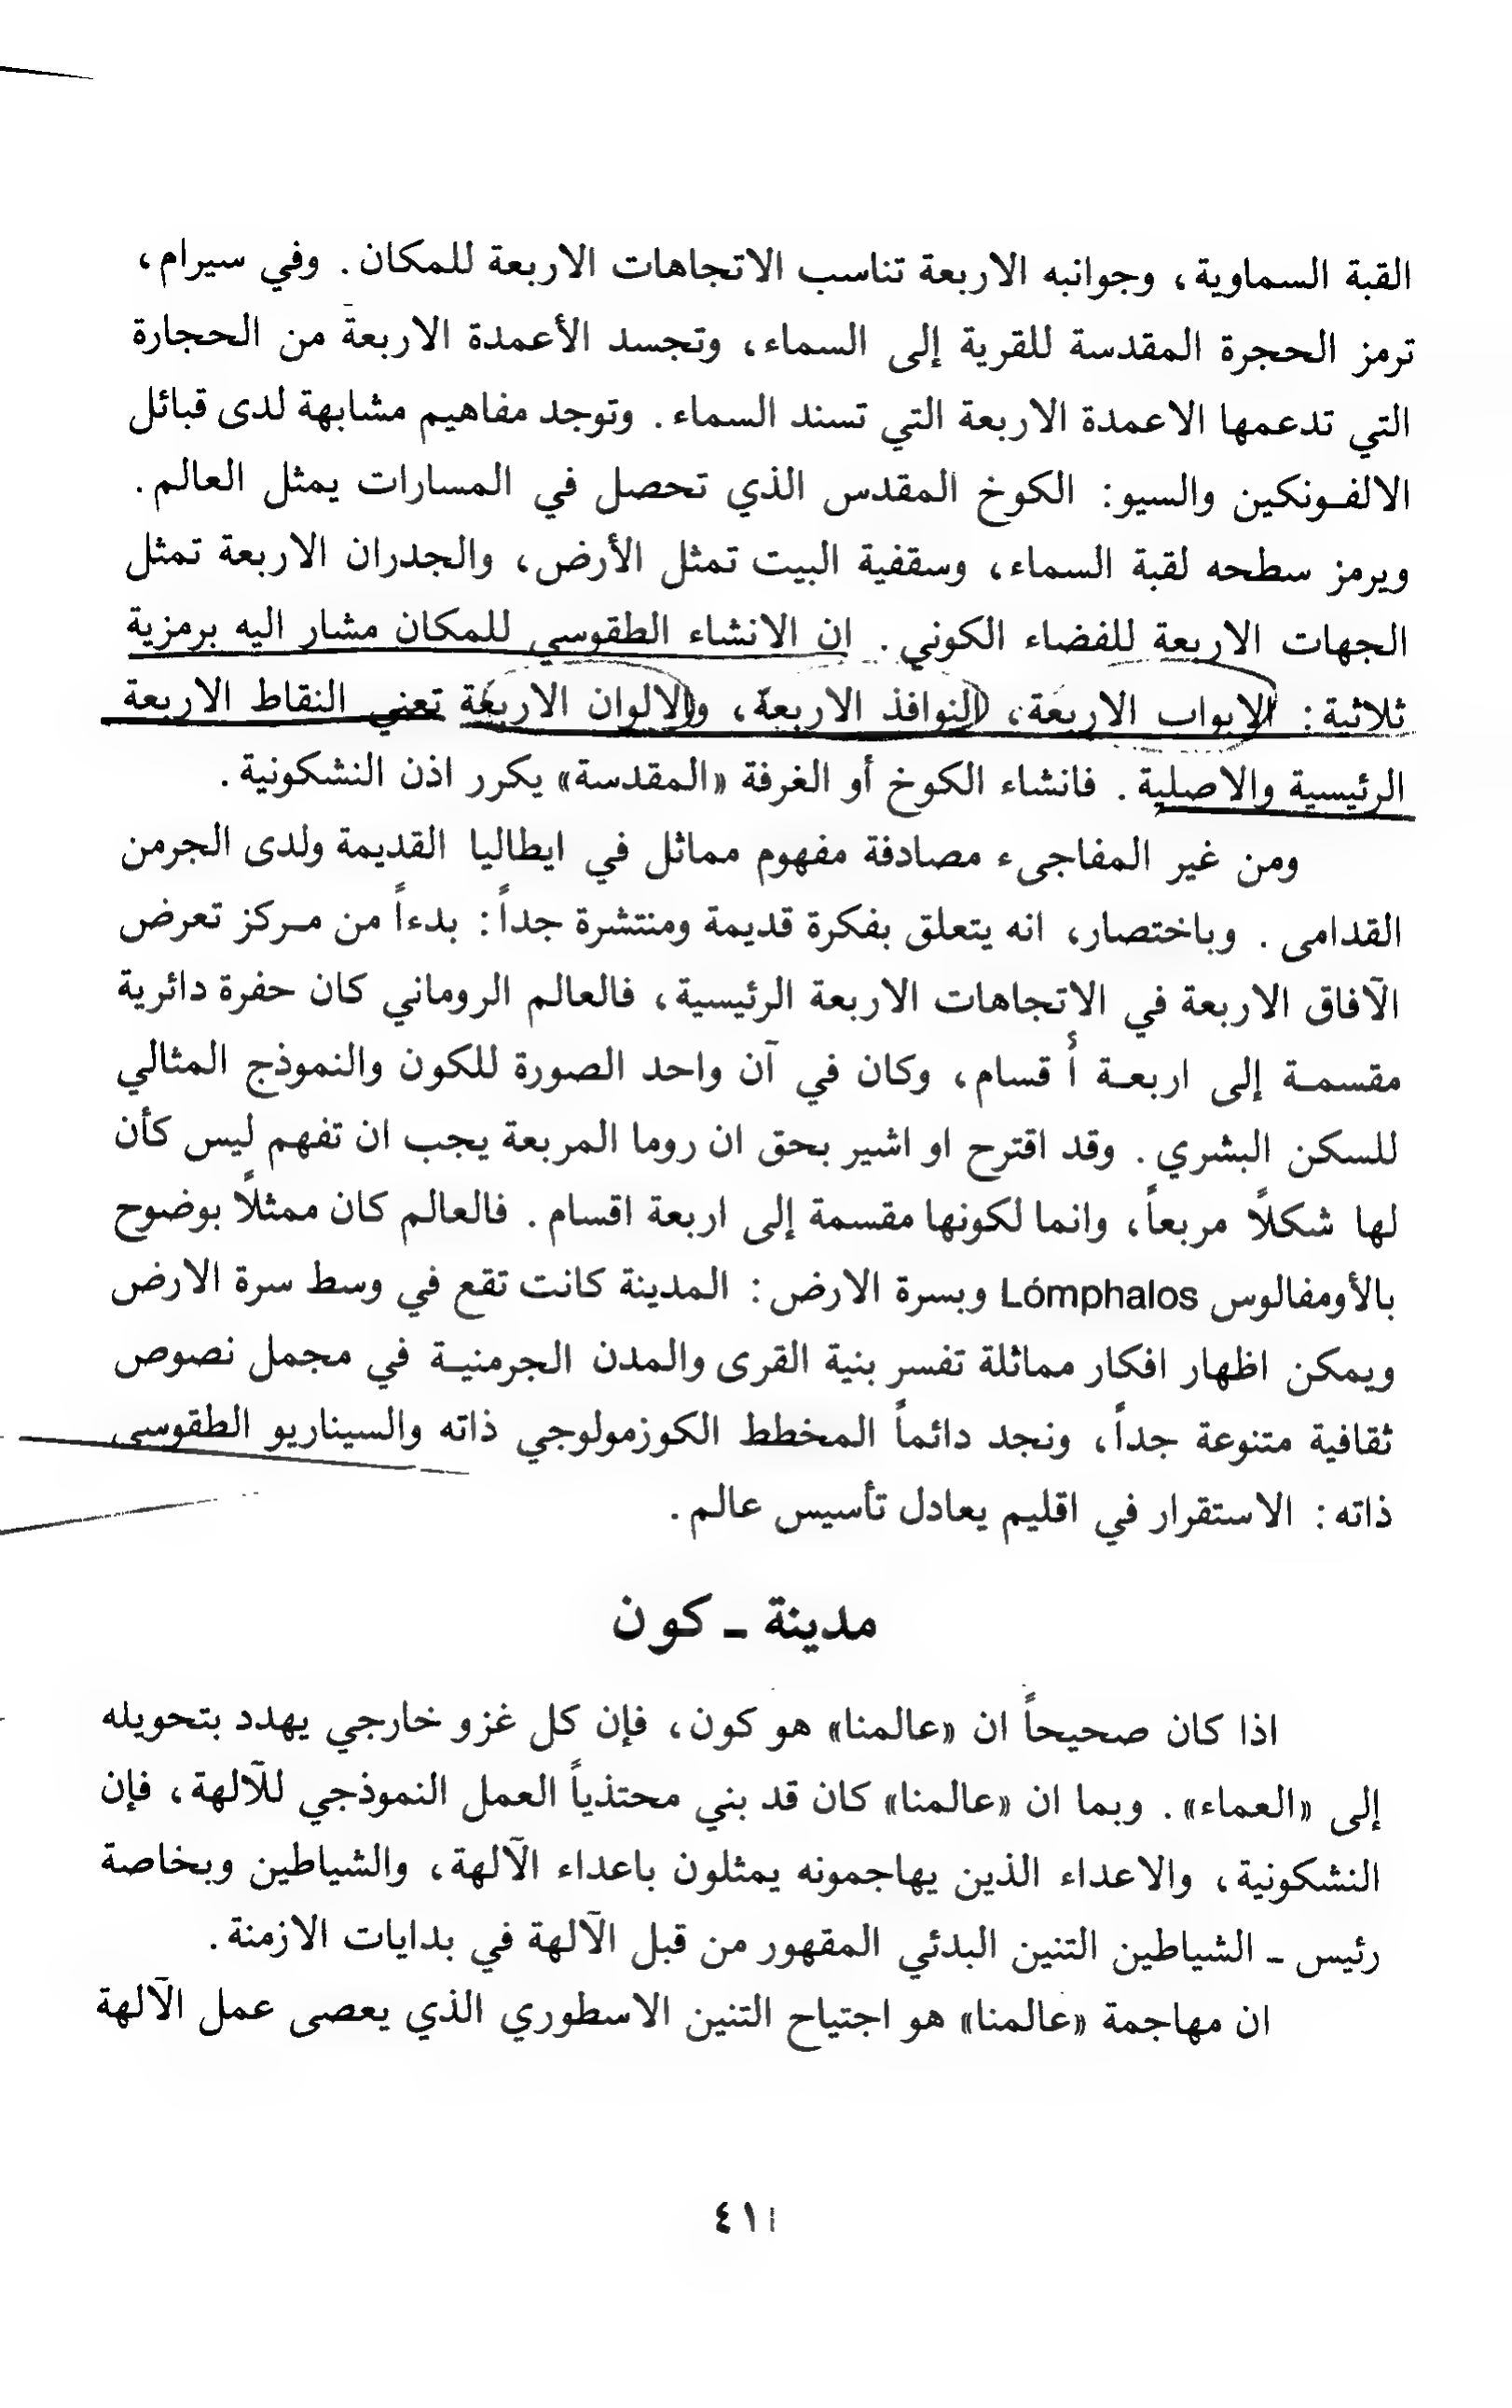 القبة السماوية، وجوانبه الاربعة تناسب الاتجاهات الاربعة للمكان. وفي سيرام،
ترمز الحجرة المقدسة للقرية إلى السماء، وتجسد الأعمدة الاربعة من الحجارة
التي تدعمها الاعمدة الاربعة التي تسند السماء. وتوجد مفاهيم مشابهة لدى قبائل
الالفونكين والسيو: الكوخ المقدس الذي تحصل في المسارات يمثل العالم.
ويرمز سطحه لقبة السماء، وسقفية البيت تمثل الأرض، والجدران الاربعة تمثل
الجهات الاربعة للفضاء الكوني. ان الانشاء الطقوسي للمكان مشار اليه برمزية
ثلاثية: الابواب الاربعة، النوافذ الاربعة، والالوان الاربعة تعني النقاط الاربعة
الرئيسية والاصلية. فانشاء الكوخ أو الغرفة «المقدسة» يكرر اذن النشكونية.
ومن غير المفاجىء مصادفة مفهوم مماثل في ايطاليا القديمة ولدى الجرمن
القدامى. وباختصار، انه يتعلق بفكرة قديمة ومنتشرة جداً: بدءاً من مركز تعرض
الآفاق الاربعة في الاتجاهات الاربعة الرئيسية، فالعالم الروماني كان حفرة دائرية
مقسمة إلى اربعة أقسام، وكان في آن واحد الصورة للكون والنموذج المثالي
للسكن البشري. وقد اقترح او اشير بحق ان روما المربعة يجب ان تفهم ليس كأن
لها شكلاً مربعاً، وانما لكونها مقسمة إلى اربعة اقسام. فالعالم كان ممثلاً بوضوح
بالأومفالوس Lómphalos وبسرة الارض: المدينة كانت تقع في وسط سرة الارض
ويمكن اظهار افكار مماثلة تفسر بنية القرى والمدن الجرمنية في مجمل نصوص
ثقافية متنوعة جداً، ونجد دائماً المخطط الكوزمولوجي ذاته والسيناريو الطقوسي
ذاته: الاستقرار في اقليم يعادل تأسيس عالم.
مدينة ـ كون
اذا كان صحيحاً ان «عالمنا» هو كون، فإن كل غزو خارجي يهدد بتحويله
إلى «العماء». وبما ان «عالمنا» كان قد بني محتذياً العمل النموذجي للآلهة، فإن
النشكونية، والاعداء الذين يهاجمونه يمثلون باعداء الآلهة، والشياطين وبخاصة
رئيس ـ الشياطين التنين البدئي المقهور من قبل الآلهة في بدايات الازمنة.
ان مهاجمة «عالمنا» هو اجتياح التنين الاسطوري الذي يعصى عمل الآلهة
٤١